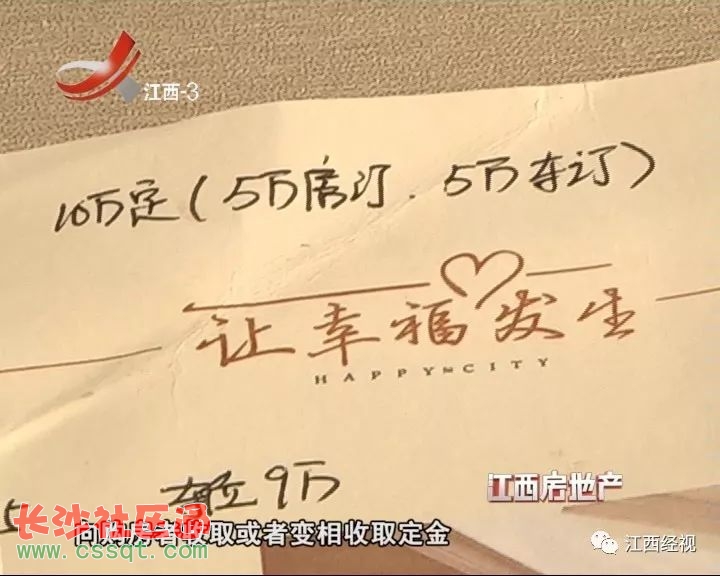 江西-3
10万定(5万房订.5万车订)
让幸福发生
HAPPY CITY
车位9万
江西房地产
长沙社区通
向购房者收取或者变相收取定金
www.cssqt.com
江西经视